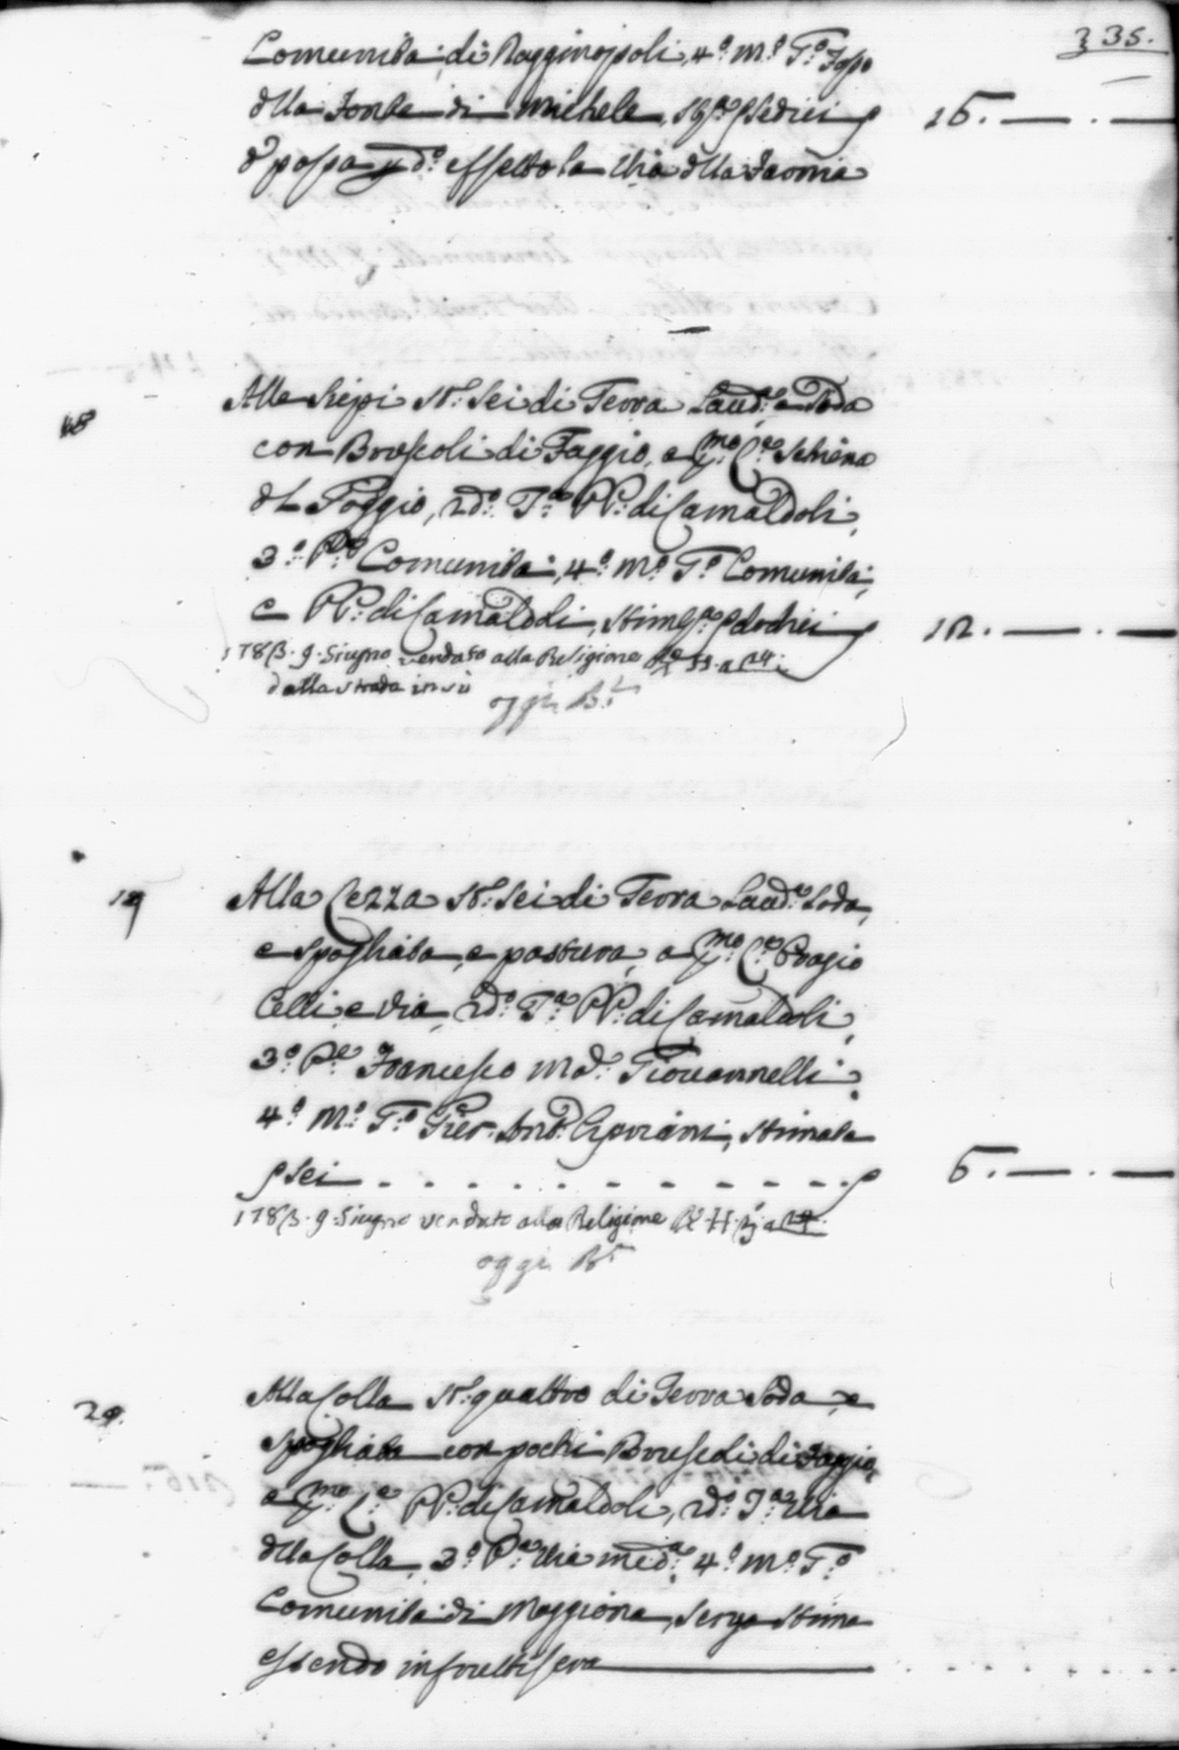 335.
Comunità di Ragginopoli, 4.° M.° T.° Fosso
dlla Fonte di Michele, Sedici 16. — . —
passa p d.° effetto la Via dlla
18 Alle Siepi St.ª Sei di Terra Laud.ª e Soda
con Bruscoli di Faggio, a P.mo C.ª Schiena
del Poggio, 2.do T.ª PP. di Camaldoli,
3.° P.e Comunità, 4.° M.° T.° Comunità,
e PP. di Camaldoli, dodici 12. — . —
1783. 9. Giugno venduto alla Religione
dalla strada in sù
oggi
19 Alla Cezza St.ª Sei di Terra Laud.ª Soda,
e spogliata, e pastura, a P.mo C.ª Biagio
Celli, e Via, 2.do T.ª PP. di Camaldoli,
3.° P.e Francesco M.ª Giovannelli,
4.° M.° T.° Pier Ant.° Cipriani, stimata
sei . . . . . . . . . . . 6. — . —
1783. 9. Giugno venduto alla Religione
oggi
20. Alla Colla St.ª quattro di Terra Soda, e
spogliata con pochi Bruscoli di Faggio,
a P.mo C.ª PP. di Camaldoli, 2.do T.ª Via
dlla Colla, 3.° P.e Via med.ª 4.° M.° T.°
Comunità di Moggiona, senza stima
essendo infruttifera